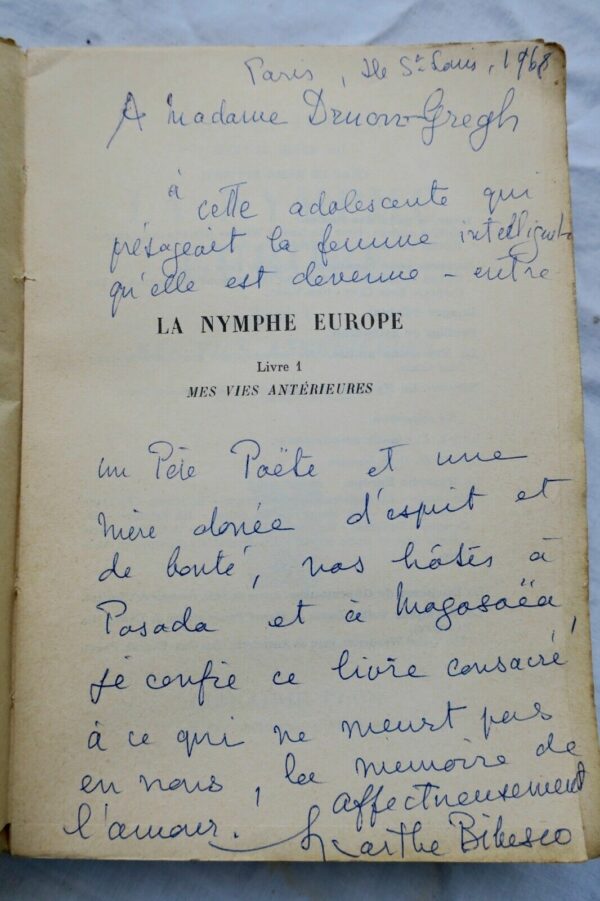 Paris, Ile St Louis, 1968
A Madame Druon-Gregh
à cette adolescente qui
présageait la femme intelligente
qu'elle est devenue - entre
LA NYMPHE EUROPE
Livre 1
MES VIES ANTÉRIEURES
un Père Poëte et une
mère donée d'esprit et
de bonté, nos hôtes à
Posada et à Mogosoëa,
je confie ce livre consacré
à ce qui ne meurt pas
en nous, la memoire de
l'amour.
affectueusement
Marthe Bibesco